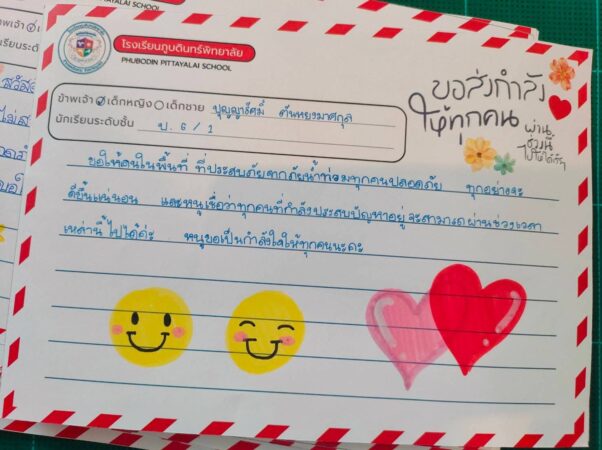 PITTAYALAI SCHOOL
โรงเรียนภูบดินทร์พิทยาลัย
PHUBODIN PITTAYALAI SCHOOL
ข้าพเจ้า เด็กหญิง เด็กชาย ปุญญารัศมิ์ ตันหยงมาศกุล
นักเรียนระดับชั้น ป. 6 / 1
ขอส่งกำลัง
ให้ทุกคน
ผ่าน
ช่วงนี้
ไปให้ได้
ขอให้คนในพื้นที่ ที่ประสบภัยจากภัยน้ำท่วมทุกคนปลอดภัย ทุกอย่างจะ
ดีขึ้นแน่นอน และหนูเชื่อว่าทุกคนที่กำลังประสบปัญหาอยู่จะสามารถผ่านช่วงเวลา
เหล่านี้ไปได้ค่ะ หนูขอเป็นกำลังใจให้ทุกคนนะคะ